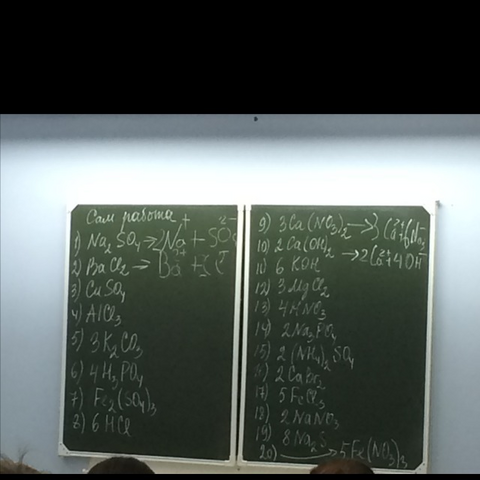 Сам работа
1) Na₂SO₄ → 2Na⁺ + SO₄²⁻
2) BaCl₂ → Ba²⁺ + 2Cl⁻
3) CuSO₄
4) AlCl₃
5) 3K₂CO₃
6) 4H₃PO₄
7) Fe₂(SO₄)₃
8) 6HCl
9) 3Ca(NO₃)₂ → 3Ca²⁺ + 6NO₃⁻
10) 2Ca(OH)₂ → 2Ca²⁺ + 4OH⁻
10) 6KOH
12) 3MgCl₂
13) 4HNO₃
14) 2Na₃PO₄
15) 2(NH₄)₂SO₄
2CaBr₂
17) 5FeCl₃
18) 2NaNO₃
19) 8Na₂S
20) → 5Fe(NO₃)₃